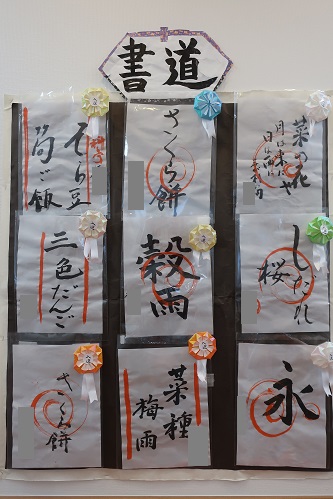 書道
菜の花や
月は東に
日は西に
さくら餅
そら豆
筍ご飯
しだれ
桜
穀雨
三色だんご
永
菜種
梅雨
さくら餅